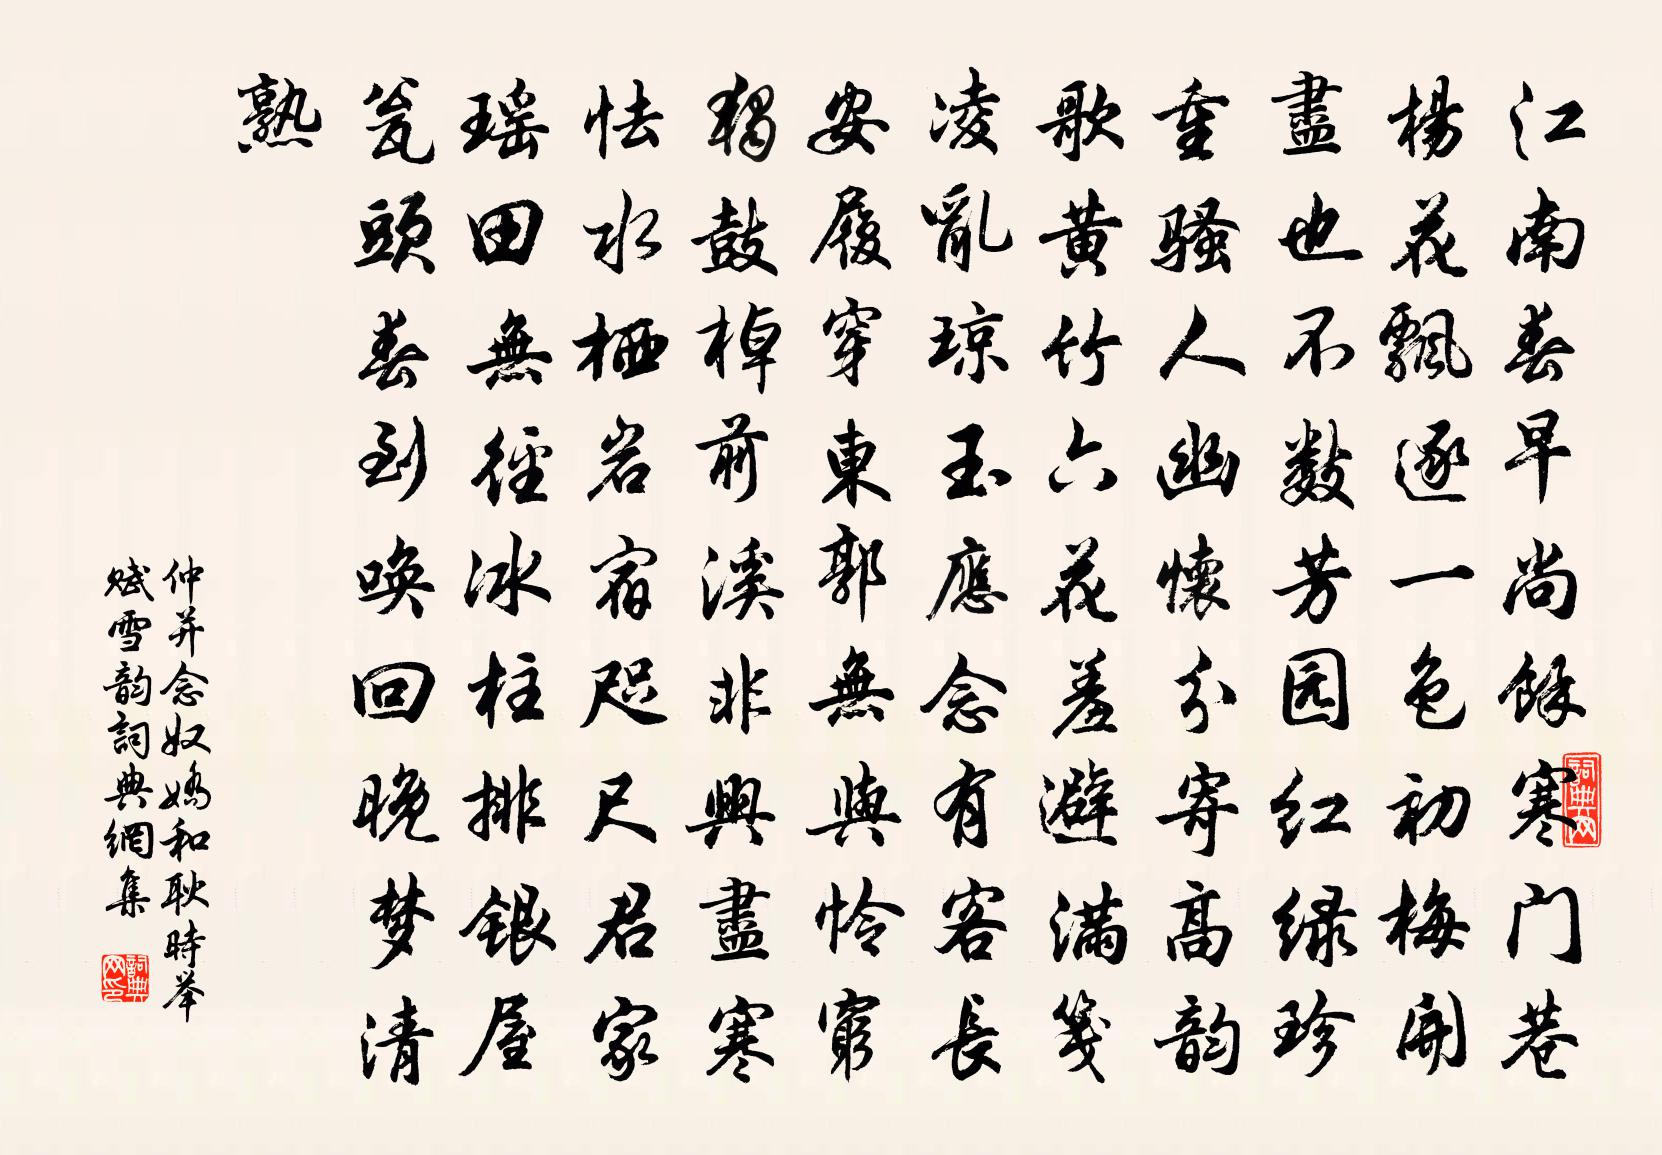 江南春早尚餘寒門巷
楊花飄逐一色初梅開
盡也不數芳园红緑珍
重騷人幽懷分寄高韵
歌黄竹六花羞避满箋
凌亂琼玉應念有客長
安履穿東郭無與怜窮
獨鼓棹前溪非興盡寒
怯水栖岩宿咫尺君家
瑶田無徑冰柱排銀屋
瓮頭春到唤回晚梦清
熟
仲并念奴嬌和耿時举
赋雪韵詞典網集
詞典网
詞典网印